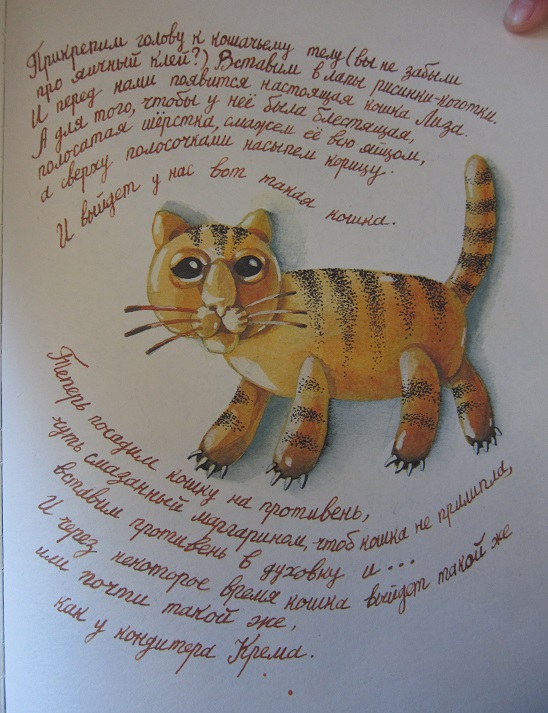 Прикрепим голову к кошачьему телу (вы не забыли
про яичный клей?) Вставим в лапы рисинки-коготки.
И перед нами появится настоящая кошка Лиза.
А для того, чтобы у неё была блестящая,
полосатая шёрстка, смажем её всю яйцом,
а сверху полосочками насыпем корицу.
И выйдет у нас вот такая кошка.
Теперь посадим кошку на противень,
чуть смазанный маргарином, чтоб кошка не прилипла,
вставим противень в духовку и...
И через некоторое время кошка выйдет такой же
или почти такой же,
как у кондитера Крема.